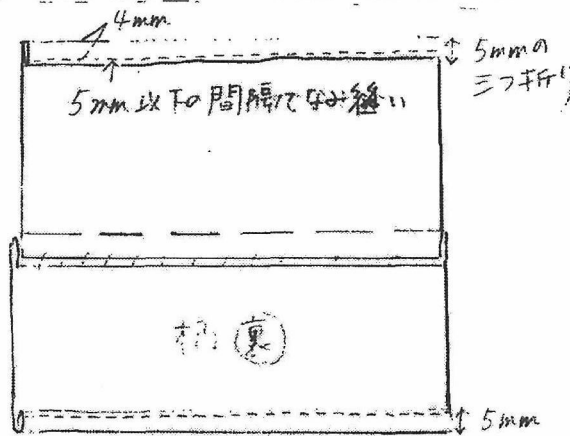 4mm
5mmの
三つ折り
5mm以下の間隔でなみ縫い
布 裏
5mm